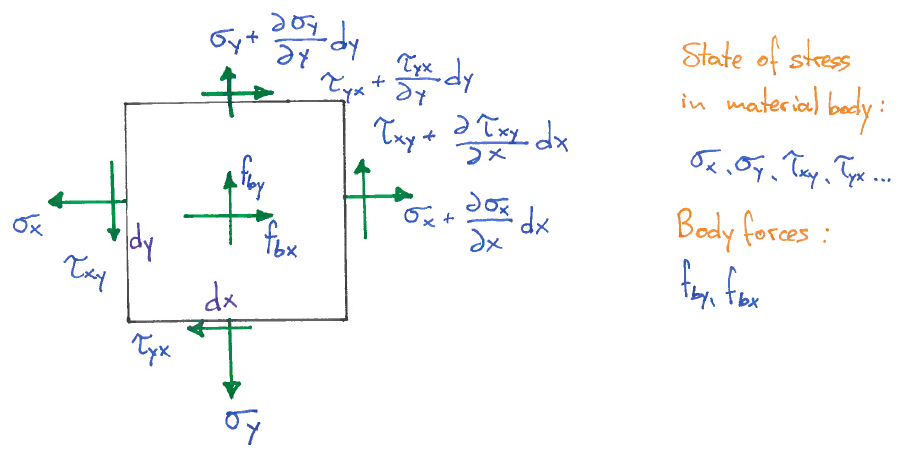 σy + ∂σy/∂y dy
τyx + τyx/∂y dy
τxy + ∂τxy/∂x dx
σx + ∂σx/∂x dx
fby
fbx
σx
τxy
dy
dx
τyx
σy
State of stress
in material body:
σx, σy, τxy, τyx ...
Body forces:
fby, fbx